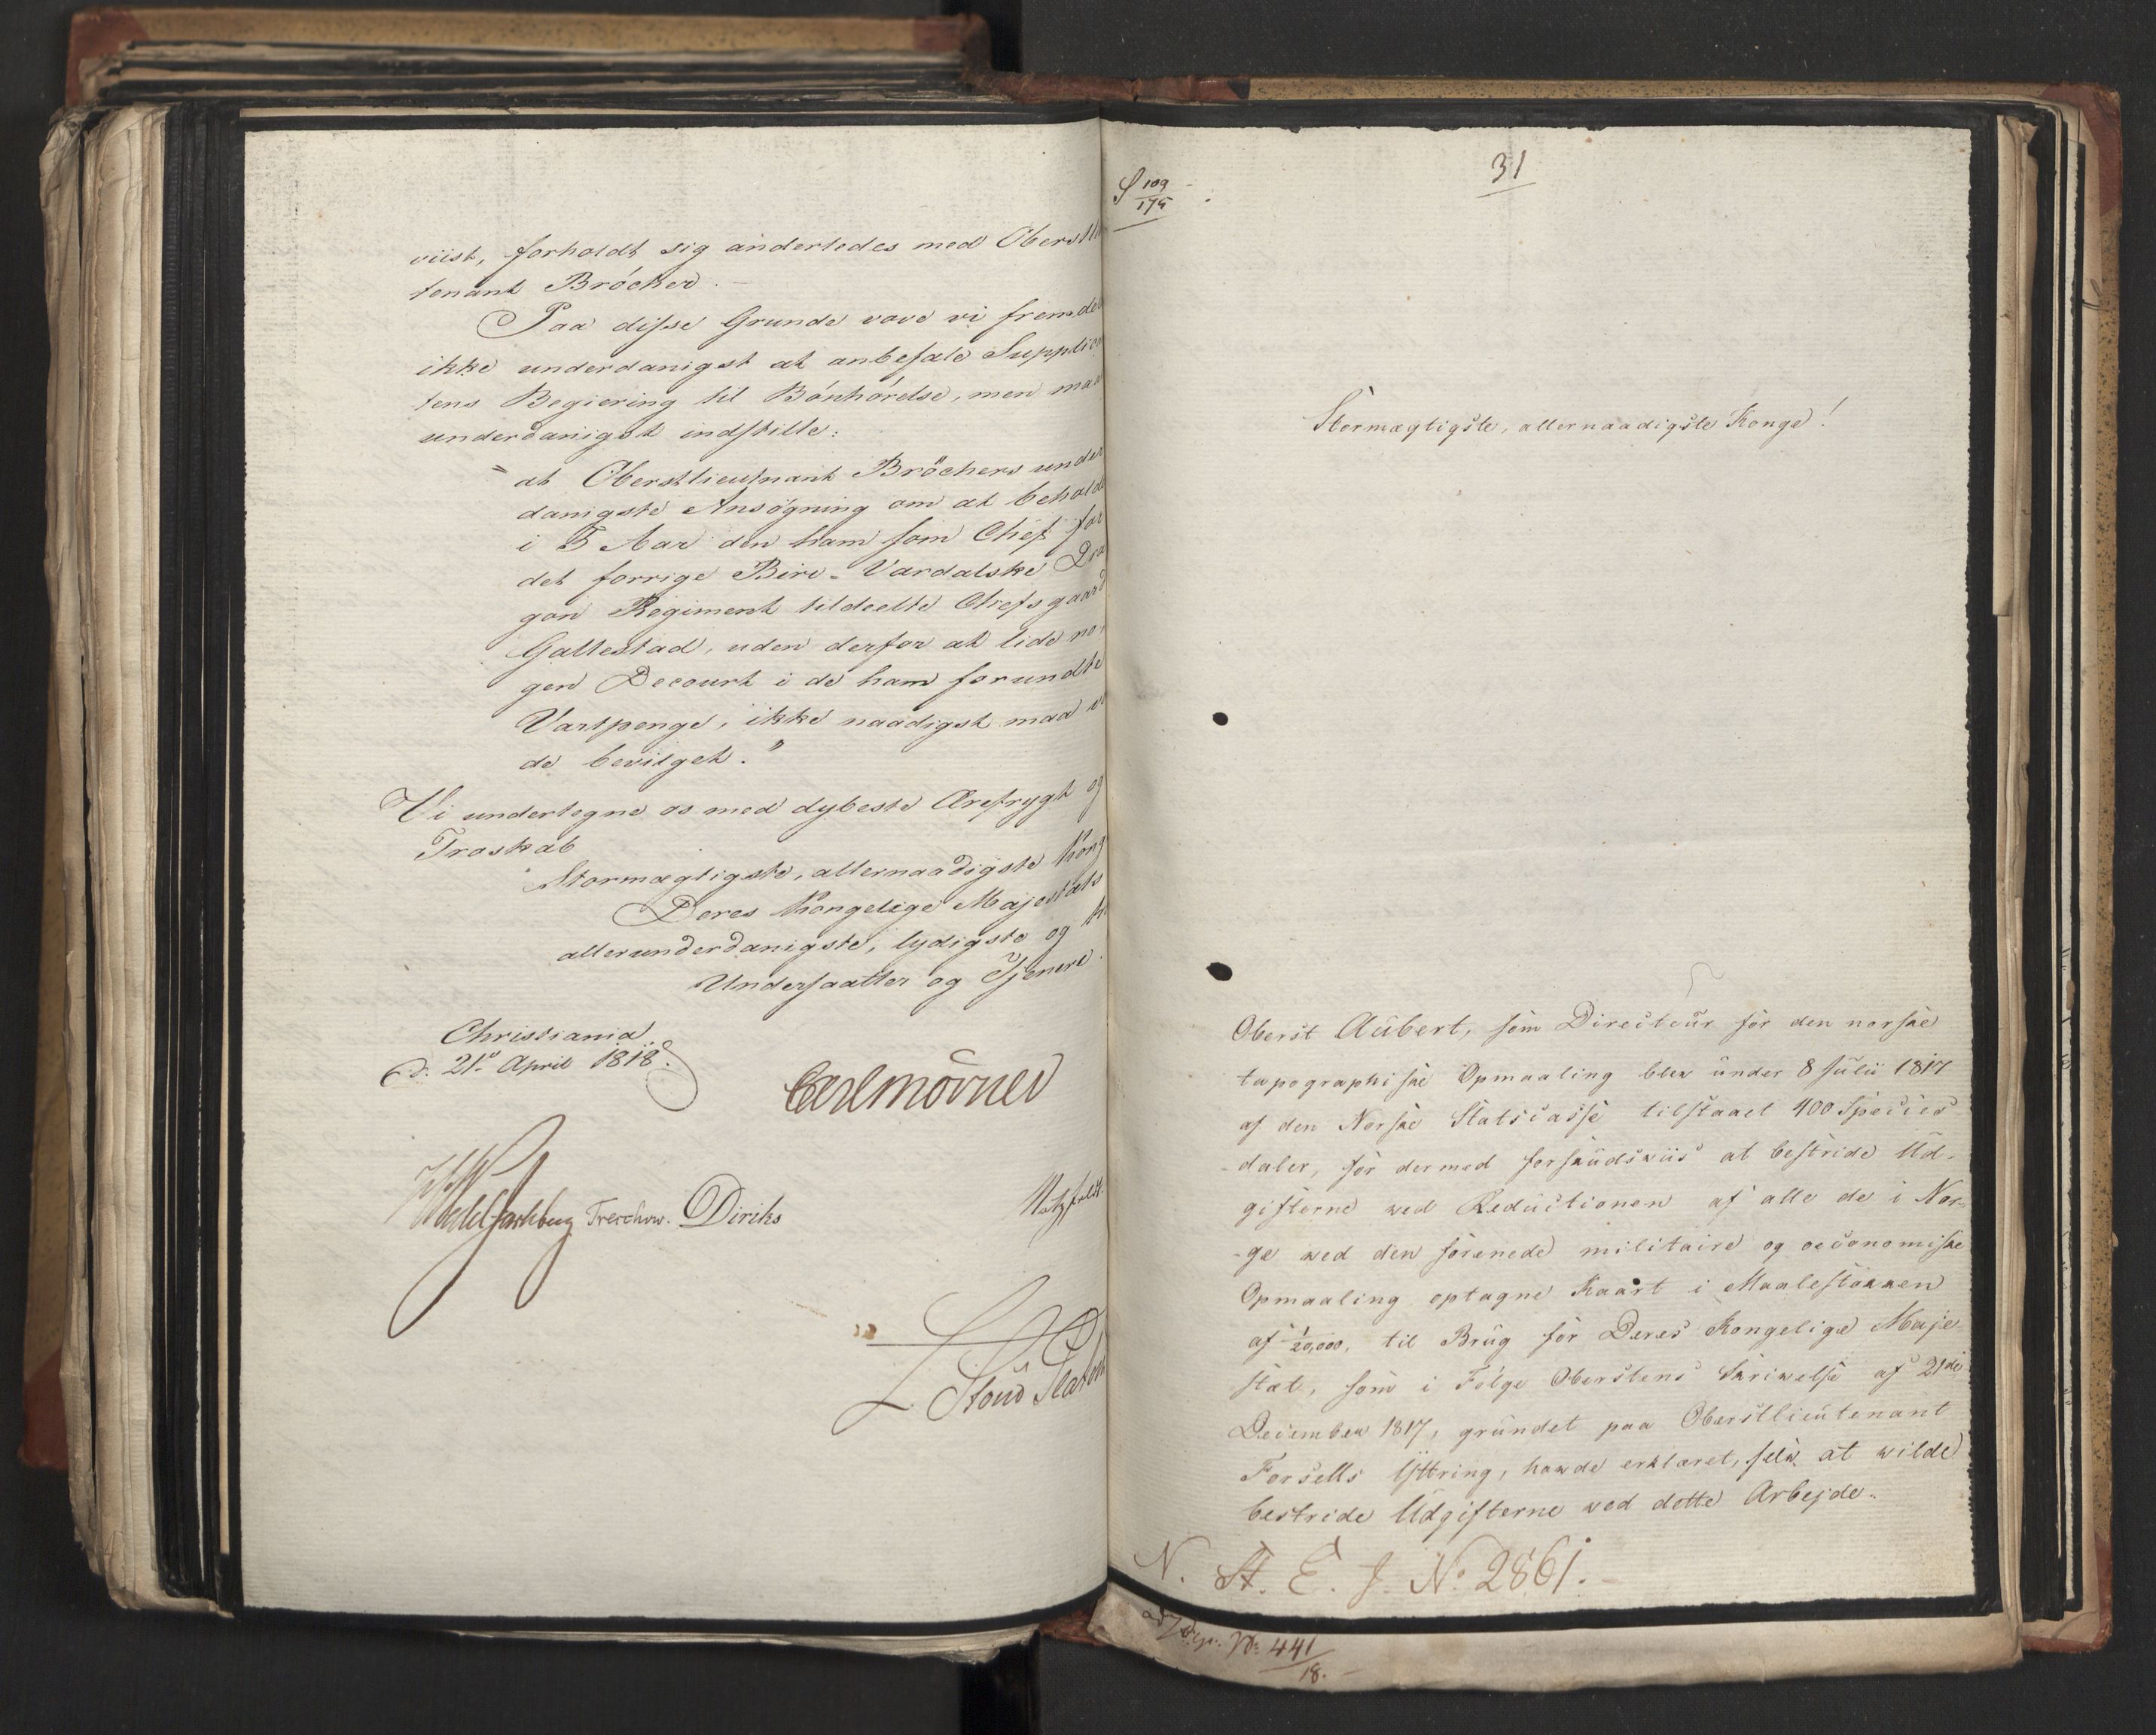 viist, forholdt sig anderledes med Oberstli
tenant Bröcker.
Paa disse Grunde vove vi fremde
ikke underdanigst at anbefale Supplic
tens Begiering til Bönhörelse, men maa
underdanigst indstille:
at Oberstlieutnant Bröckers under
danigste Ansögning om at behold
i 5 Aar den ham som Chef for
det forrige Bire-Vardalske Dra
gon Regiment tildeelte Chefsgaard
Gallestad, uden derfor at lide no
gen Decourt i de ham forundte
Vartpenge, ikke naadigst maa v
de bevilget."
Vi undertegne os med dybeste Ærefrygt og
Troskab
Stormægtigste, allernaadigste Kong
Deres Kongelige Majestæts
allerunderdanigste, lydigste og
Undersaatter og Tjenere.
Christiania
d. 21de April 1818.
Carl Mörner
Wedel Jarlsberg Treschow. Diriks Motzfeldt.
L. Stoud Platou
S 109/175
31
Stormægtigste, allernaadigste Konge!
Oberst Aubert, som Directeur for den norske
topographiske Opmaaling blev under 8 Julii 1817
af den Norske Statscasse tilstaaet 400 Species
-daler, for dermed forskudsviis at bestride Ud-
gifterne ved Reductionen af alle de i Nor-
-ge ved den forenede militaire og oeconomiske
Opmaaling optagne Kaart i Maalestokken
af 1/20,000, til Brug for Deres Kongelige Maje-
stæt, som i Følge Oberstens Skrivelse af 21de
December 1817, grundet paa Oberstlieutenant
Forsells Yttring, havde erklæret, selv at wilde
bestride Udgifterne ved dette Arbejde.
N. St. E. J. No 2861.
No. 441/18.